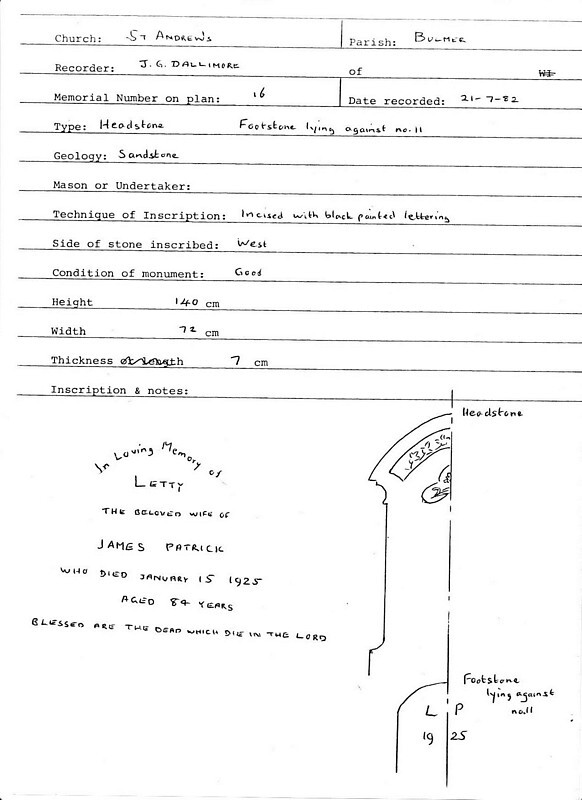 Church: St Andrew's Parish: Bulmer
Recorder: J. G. Dallimore of WI
Memorial Number on plan: 16 Date recorded: 21-7-82
Type: Headstone Footstone lying against no.11
Geology: Sandstone
Mason or Undertaker:
Technique of Inscription: Incised with black painted lettering
Side of stone inscribed: West
Condition of monument: Good
Height 140 cm
Width 72 cm
Thickness or length 7 cm
Inscription & notes:
Headstone
In Loving Memory of
LETTY
THE BELOVED WIFE OF
JAMES PATRICK
WHO DIED JANUARY 15 1925
AGED 84 YEARS
BLESSED ARE THE DEAD WHICH DIE IN THE LORD
Footstone
lying against
no.11
L P
19 25